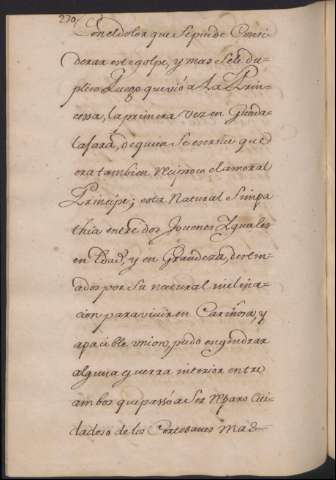 230
Con el dolor que se puede Consi
derar este golpe, y mas se le du
plico luego que vió a la Prin
cessa, la primera vez en Guada
laxara, de quien se escrive que
era tambien reciproco el amor al
Principe; esta Natural Simpa
thia entre dos Jovenes Yguales
en Edad, y en Grandeza, destin
ados por Su natural inclina
cion para vivir en Cariñosa, y
apacible union, pudo engendrar
alguna guerra interior entre
ambos que passó a Ser reparo Cui
dadoso de los Cortesanos mas